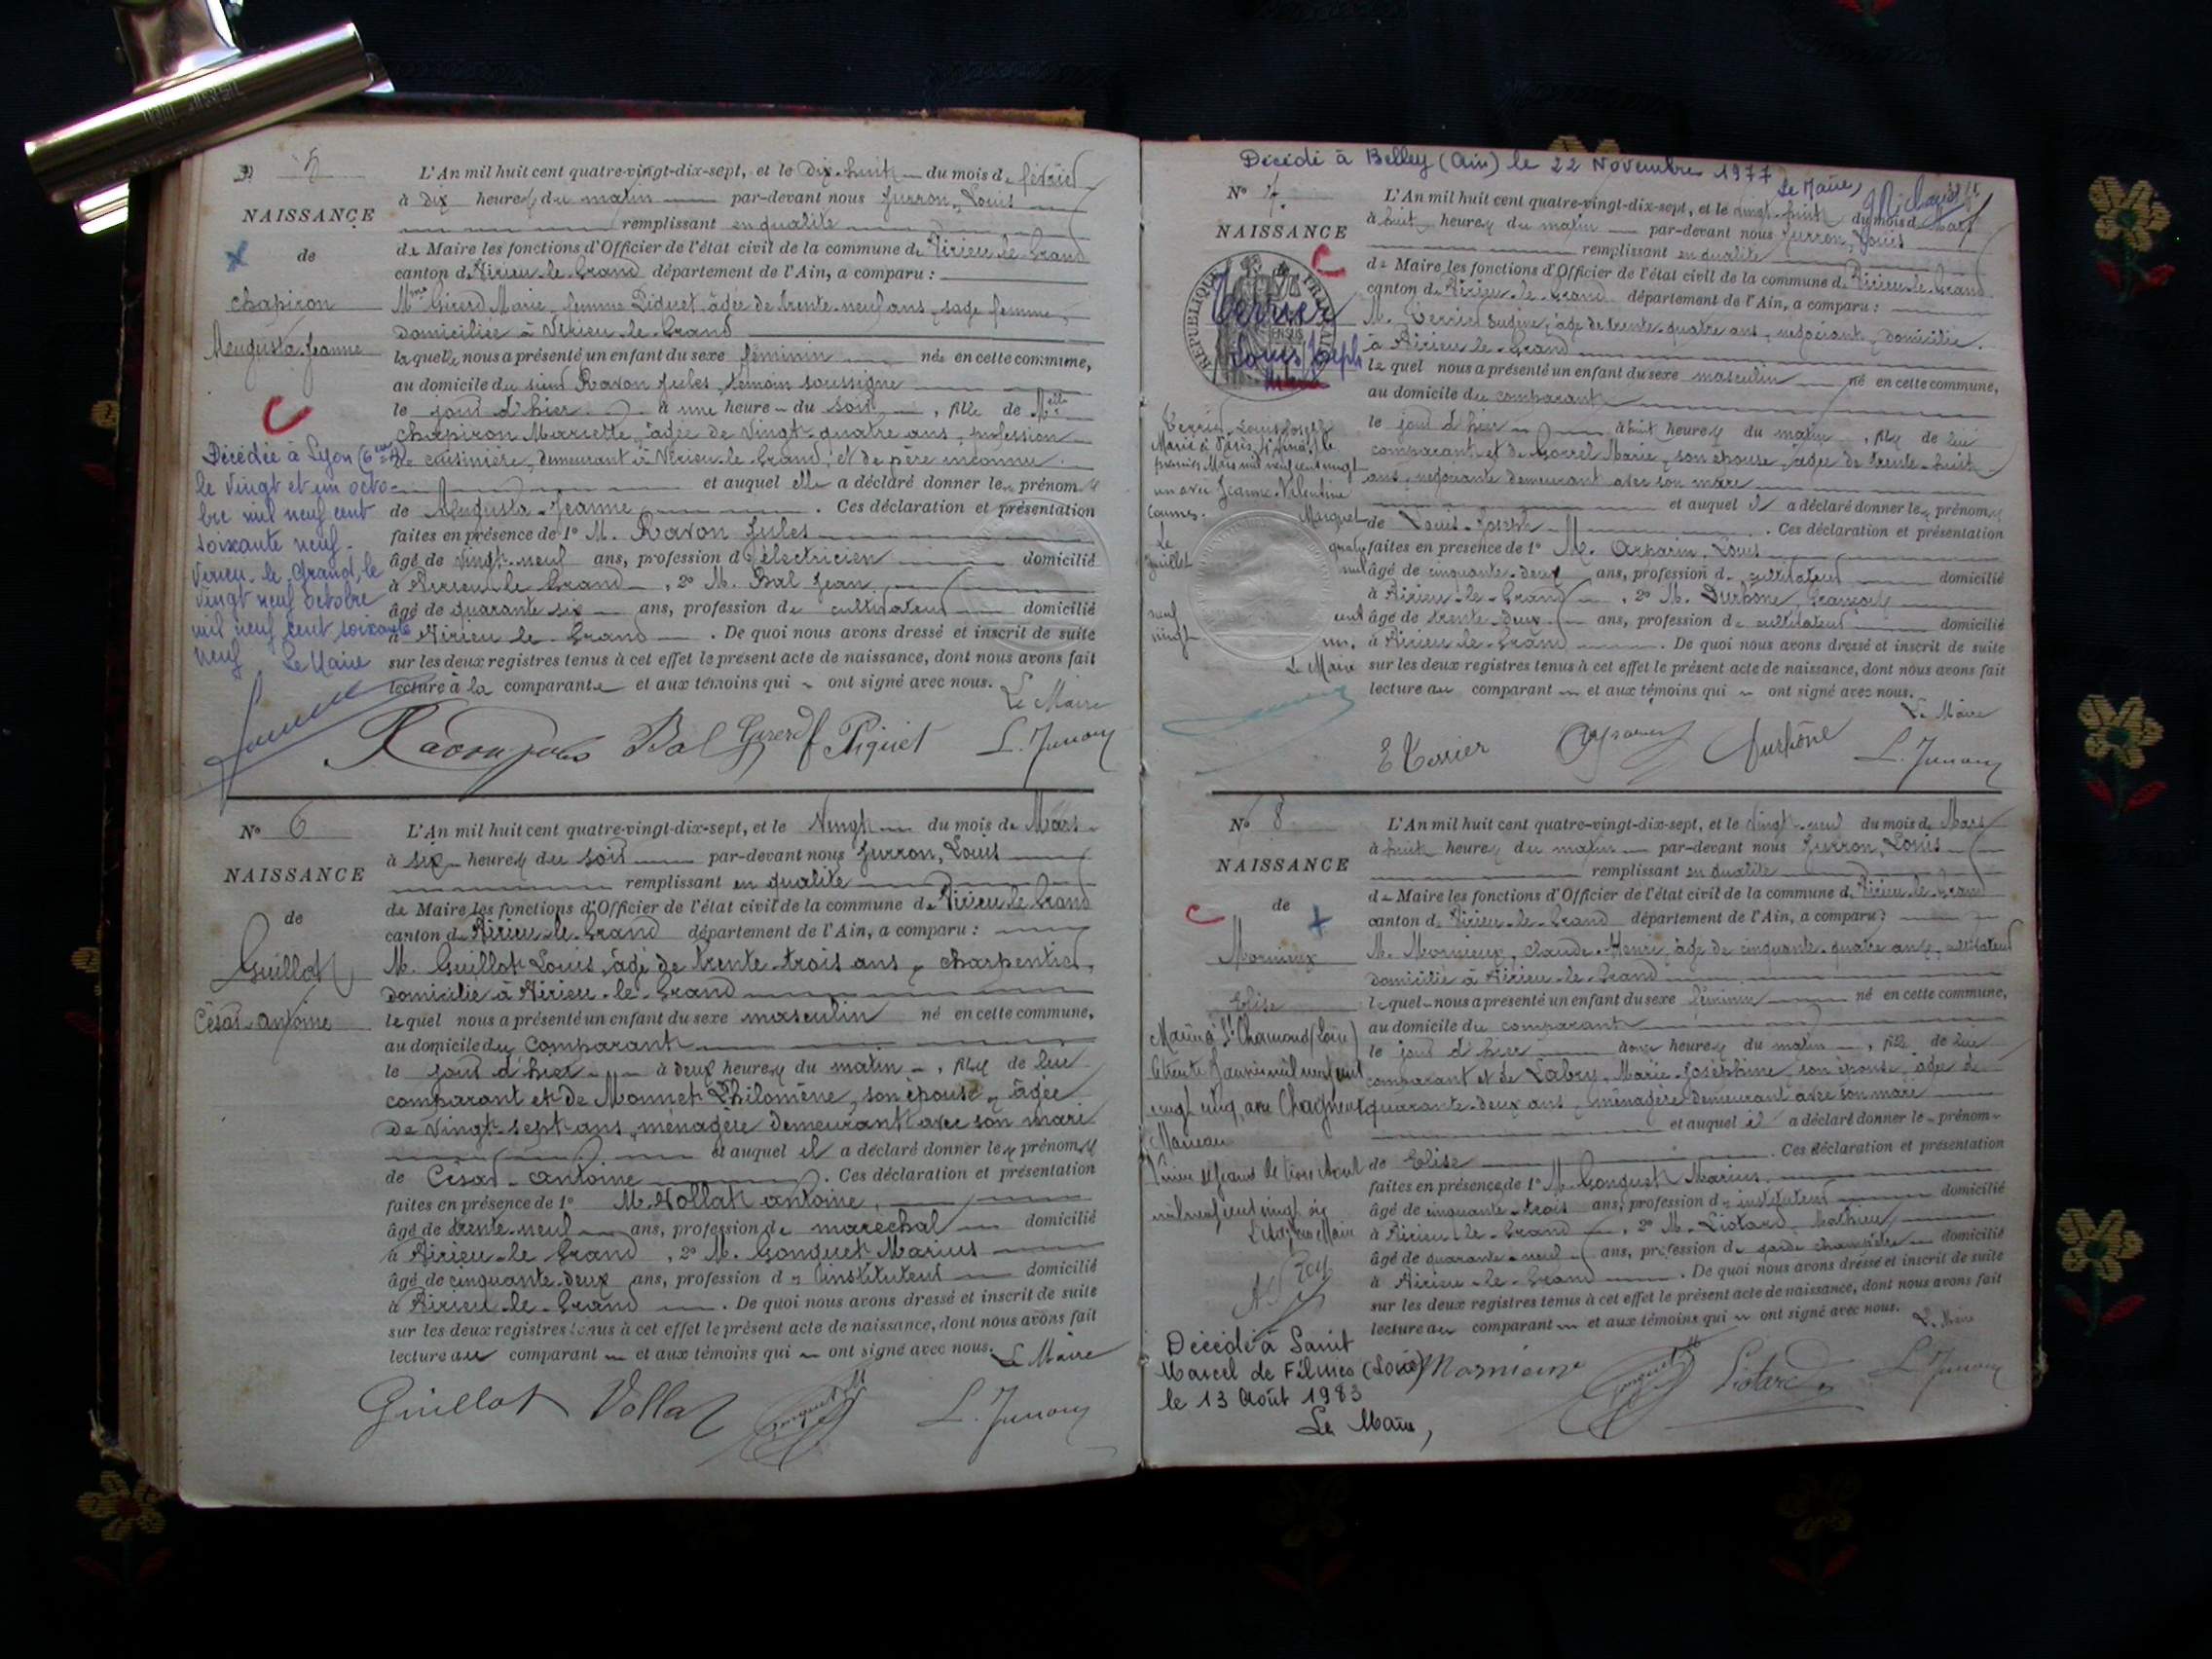 5
L'An mil huit cent quatre-vingt-dix-sept, et le Dix-huit du mois de février
à dix heures du matin par-devant nous Juvron, Louis
NAISSANCE
remplissant en qualité
de
de Maire les fonctions d'Officier de l'état civil de la commune de Virieu-le-Grand
canton de Virieu-le-Grand département de l'Ain, a comparu :
Chapiron
Mme Girerd Marie, femme Piguet, âgée de trente-neuf ans, sage femme,
domiciliée à Virieu-le-Grand
Augusta-Jeanne
laquelle nous a présenté un enfant du sexe féminin née en cette commune,
au domicile du sieur Ravon Jules, témoin soussigné
le jour d'hier à une heure du soir, fille de Melle
Chapiron Mariette, âgée de vingt-quatre ans, profession
de cuisinière, demeurant à Virieu-le-Grand, et de père inconnu
et auquel elle a déclaré donner les prénoms
de Augusta-Jeanne . Ces déclaration et présentation
faites en présence de 1º M. Ravon Jules
âgé de vingt-neuf ans, profession d'électricien domicilié
à Virieu-le-Grand, 2º M. Bal Jean
âgé de quarante six ans, profession de cultivateur domicilié
à Virieu-le-Grand . De quoi nous avons dressé et inscrit de suite
sur les deux registres tenus à cet effet le présent acte de naissance, dont nous avons fait
lecture à la comparante et aux témoins qui ont signé avec nous.
Le Maire
Décédée à Lyon (6ème)
le vingt et un octo-
bre mil neuf cent
soixante neuf.
Virieu-le-Grand, le
vingt neuf octobre
mil neuf cent soixante
neuf Le Maire
Ravon Jules Bal Girerd f Piguet
Nº 6
L'An mil huit cent quatre-vingt-dix-sept, et le Vingt du mois de Mars
à six heures du soir par-devant nous Juvron, Louis
NAISSANCE
remplissant en qualité
de
de Maire les fonctions d'Officier de l'état civil de la commune de Virieu-le-Grand
canton de Virieu-le-Grand département de l'Ain, a comparu :
Guillot
M. Guillot Louis, âgé de trente-trois ans, charpentier,
domicilié à Virieu-le-Grand
César-Antoine
lequel nous a présenté un enfant du sexe masculin né en cette commune,
au domicile du comparant
le jour d'hier à deux heures du matin, fils de lui
comparant et de Monnet Philomène, son épouse, âgée
de vingt-sept ans, ménagère demeurant avec son mari
et auquel il a déclaré donner les prénoms
de César-Antoine . Ces déclaration et présentation
faites en présence de 1º M. Vollat Antoine,
âgé de trente-neuf ans, profession de maréchal domicilié
à Virieu-le-Grand, 2º M. Gonguet Marius
âgé de cinquante-deux ans, profession d'instituteur domicilié
à Virieu-le-Grand . De quoi nous avons dressé et inscrit de suite
sur les deux registres tenus à cet effet le présent acte de naissance, dont nous avons fait
lecture au comparant et aux témoins qui ont signé avec nous.
Le Maire
Guillot Vollat
Décédé à Belley (Ain) le 22 Novembre 1977
Le Maire,
Nº 7.
L'An mil huit cent quatre-vingt-dix-sept, et le vingt-huit du mois de Mars
à huit heures du matin par-devant nous Juvron, Louis
NAISSANCE
remplissant en qualité
de Maire les fonctions d'Officier de l'état civil de la commune de Virieu-le-Grand
canton de Virieu-le-Grand département de l'Ain, a comparu :
REPUBLIQUE FRANÇAISE
Terrier
Louis Joseph
M. Terrier Eugène, âgé de trente-quatre ans, négociant, domicilié
à Virieu-le-Grand
lequel nous a présenté un enfant du sexe masculin né en cette commune,
au domicile du comparant
le jour d'hier à huit heures du matin, fils de lui
comparant et de Gorrel Marie, son épouse, âgée de trente-huit
ans, négociante demeurant avec son mari
et auquel il a déclaré donner les prénoms
de Louis-Joseph . Ces déclaration et présentation
faites en présence de 1º M. Arparin, Louis
âgé de cinquante-deux ans, profession de cultivateur domicilié
à Virieu-le-Grand, 2º M. Durhône François
âgé de trente-deux ans, profession de cultivateur domicilié
à Virieu-le-Grand . De quoi nous avons dressé et inscrit de suite
sur les deux registres tenus à cet effet le présent acte de naissance, dont nous avons fait
lecture au comparant et aux témoins qui ont signé avec nous.
Le Maire
Terrier Louis Joseph
Marié à Paris, le
premier Mars mil neuf cent vingt
un avec Jeanne Valentine
Le Maire
E Terrier Durhône
Nº 8
L'An mil huit cent quatre-vingt-dix-sept, et le vingt-neuf du mois de Mars
à huit heures du matin par-devant nous Juvron, Louis
NAISSANCE
remplissant en qualité
de
de Maire les fonctions d'Officier de l'état civil de la commune de Virieu-le-Grand
canton de Virieu-le-Grand département de l'Ain, a comparu :
Mornieux
M. Mornieux, Claude-Henri, âgé de cinquante-quatre ans, cultivateur
domicilié à Virieu-le-Grand
Elise
lequel nous a présenté un enfant du sexe féminin né en cette commune,
au domicile du comparant
le jour d'hier à onze heures du matin, fille de lui
comparant et de Labry, Marie-Joséphine, son épouse, âgée de
quarante-deux ans, ménagère demeurant avec son mari
et auquel il a déclaré donner le prénom
de Elise . Ces déclaration et présentation
faites en présence de 1º M. Gonguet Marius
âgé de cinquante-trois ans, profession d'instituteur domicilié
à Virieu-le-Grand, 2º M. Liotard, Mathieu,
âgé de quarante-neuf ans, profession de garde champêtre domicilié
à Virieu-le-Grand . De quoi nous avons dressé et inscrit de suite
sur les deux registres tenus à cet effet le présent acte de naissance, dont nous avons fait
lecture au comparant et aux témoins qui ont signé avec nous.
Le Maire
Mariée à St Chamond (Loire)
le trente Janvier mil neuf cent
vingt cinq, avec Chagneux
Décédé à Saint
Marcel de Félines (Loire)
le 13 Août 1983
Le Maire,
Mornieux Liotard